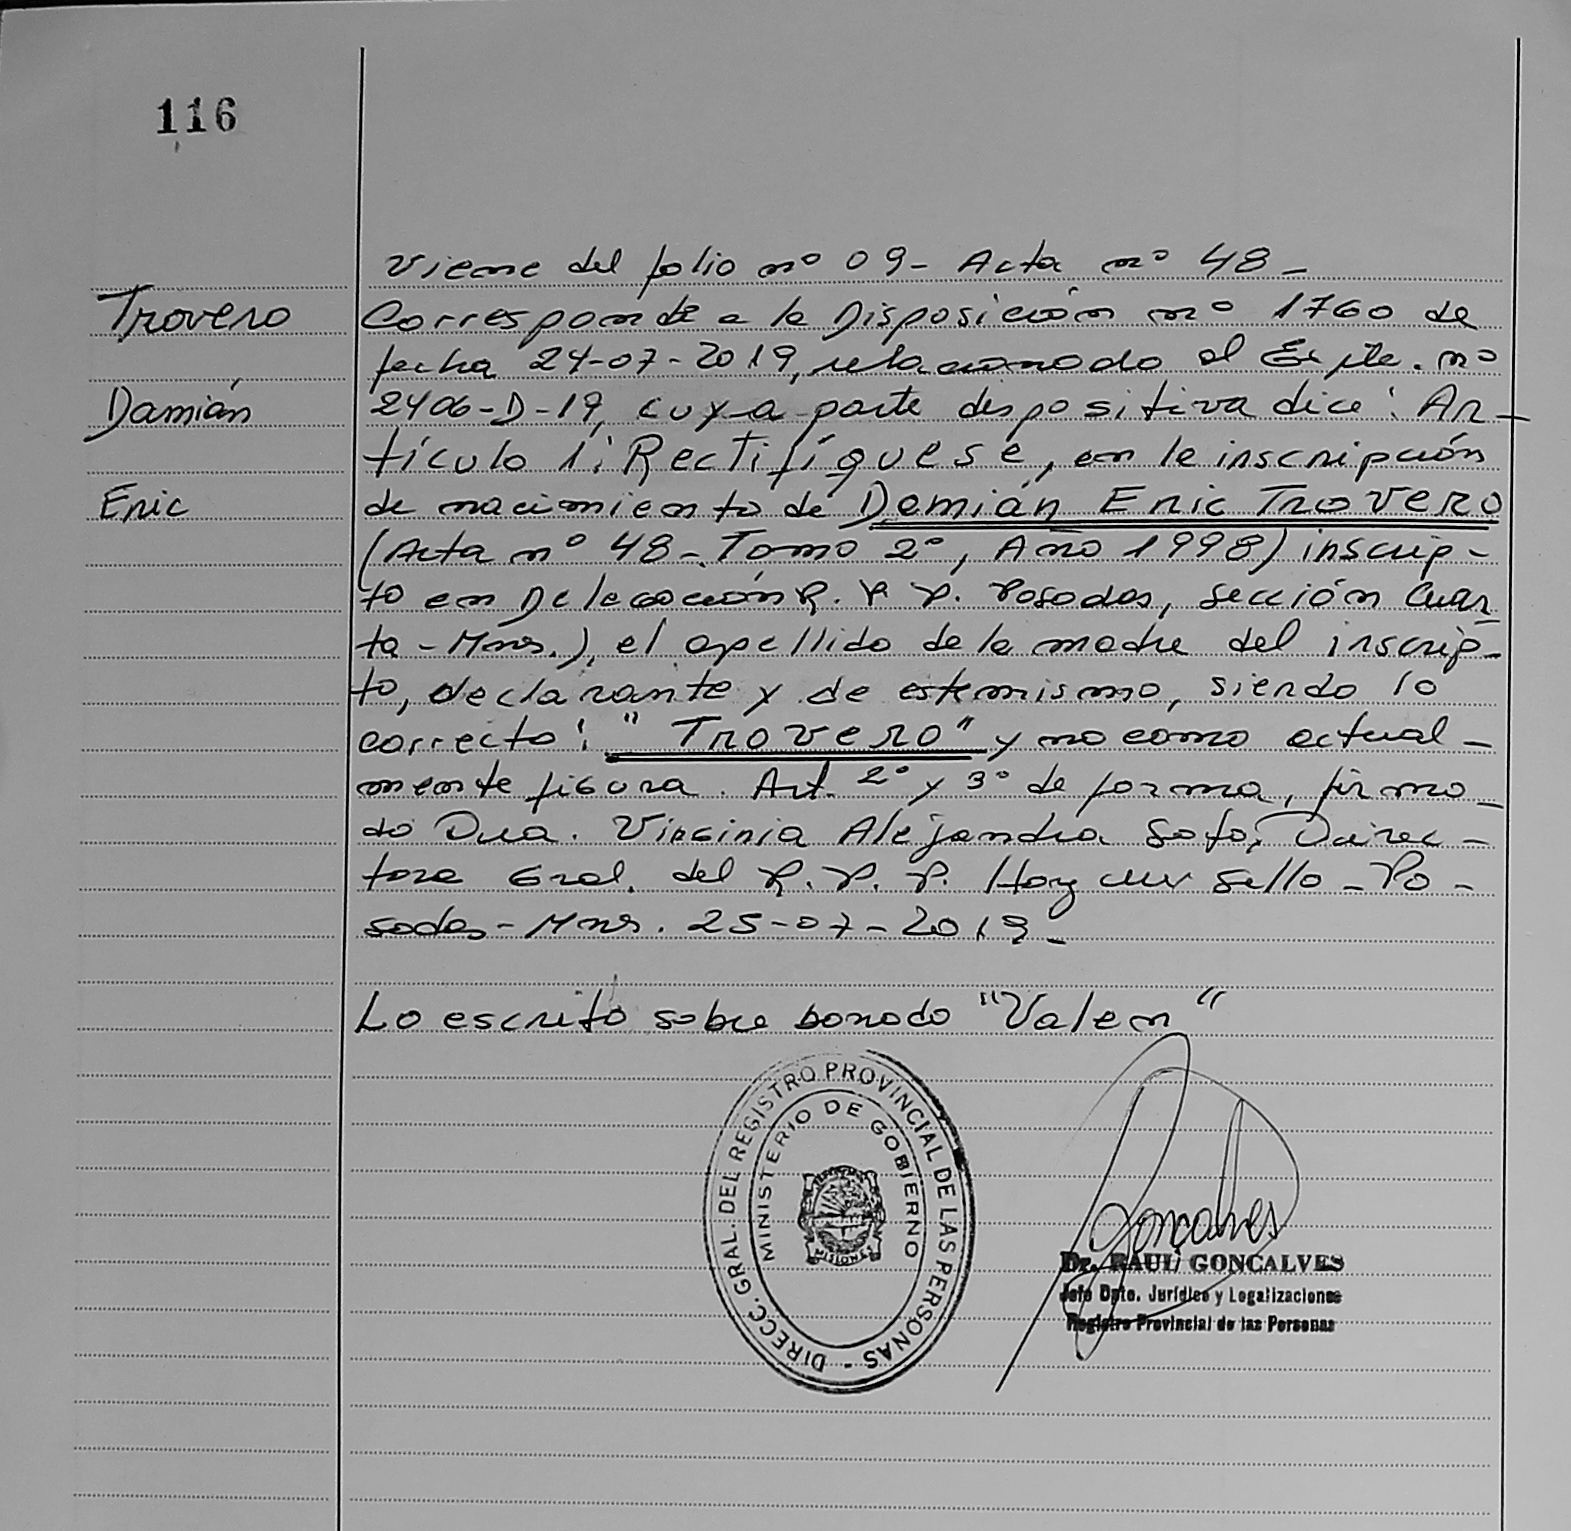 116
Viene del folio nº 09- Acta nº 48-
Trovero
Corresponde a la Disposición nº 1760 de
fecha 24-07-2019, relacionado al Expte. nº
Damián
2406-D-19, cuya parte dispositiva dice: Ar-
tículo 1: Rectifíquese, en la inscripción
Eric
de nacimiento de Damián Eric Trovero
(Acta nº 48-Tomo 2º, Año 1998) inscrip-
to en Delegación R. P. P. Posadas, Sección Cuar-
ta-Mnes.), el apellido de la madre del inscrip-
to, declarante y de este mismo, siendo lo
correcto: "Trovero" y no como actual-
mente figura. Art. 2º y 3º de forma, firma-
do Dra. Virginia Alejandra Soto, Direc-
tora Gral. del R. P. P. Hay un sello-Po-
sadas-Mnes. 25-07-2019-
Lo escrito sobre borrado "Valen"
DIRECC. GRAL. DEL REGISTRO PROVINCIAL DE LAS PERSONAS -
MINISTERIO DE GOBIERNO
MISIONES
Goncalves
Dr. RAUL GONCALVES
Jefe Dpto. Jurídico y Legalizaciones
Registro Provincial de las Personas